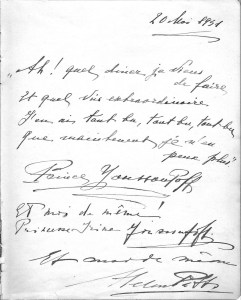 20 Mai 1951
"Ah! quel dîner je viens
de faire
Et quel vin extraordinaire
J'en ai tant bu, tant bu, tant bu
que maintenant je n'en
peux plus"
Prince Youssoupoff
Et moi de même!
Princesse Irène Youssoupoff
Et moi de même